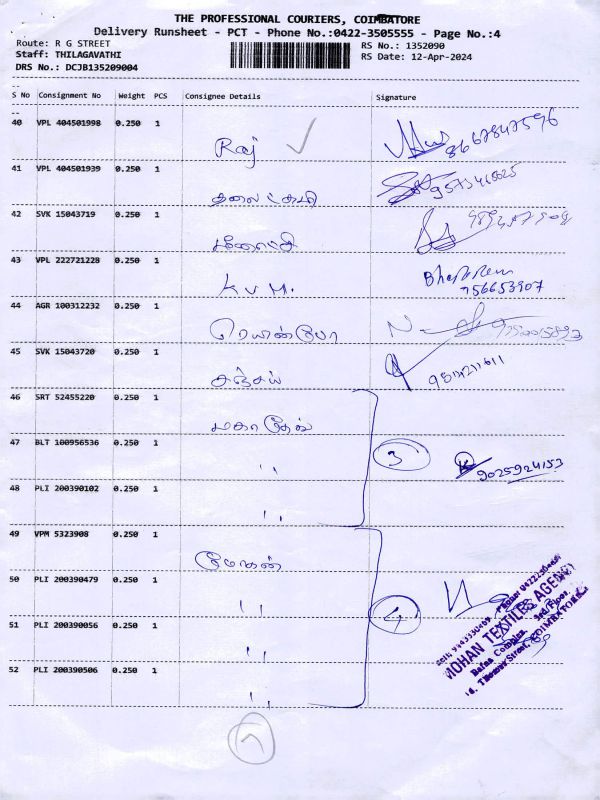 THE PROFESSIONAL COURIERS, COIMBATORE
Delivery Runsheet - PCT - Phone No.:0422-3505555 - Page No.:4
Route: R G STREET
Staff: THILAGAVATHI
DRS No.: DCJB135209004
RS No.: 1352090
RS Date: 12-Apr-2024
S No Consignment No Weight PCS Consignee Details Signature
40 VPL 404501998 0.250 1 Raj 8667847596
41 VPL 404501939 0.250 1
42 SVK 15043719 0.250 1
43 VPL 222721228 0.250 1 K V M.
44 AGR 100312232 0.250 1 ரெயின்போ
45 SVK 15043720 0.250 1 சஞ்சய்
46 SRT 52455220 0.250 1 மகாதேவ்
47 BLT 100956536 0.250 1 ,, 3 9025924153
48 PLI 200390102 0.250 1 ,,
49 VPM 5323908 0.250 1 மோகன்
50 PLI 200390479 0.250 1 ,, 4
51 PLI 200390056 0.250 1 ,,
52 PLI 200390506 0.250 1 ,,
MOHAN TEXTILES AGENCY
Complex, 3rd Floor,
Street, COIMBATORE